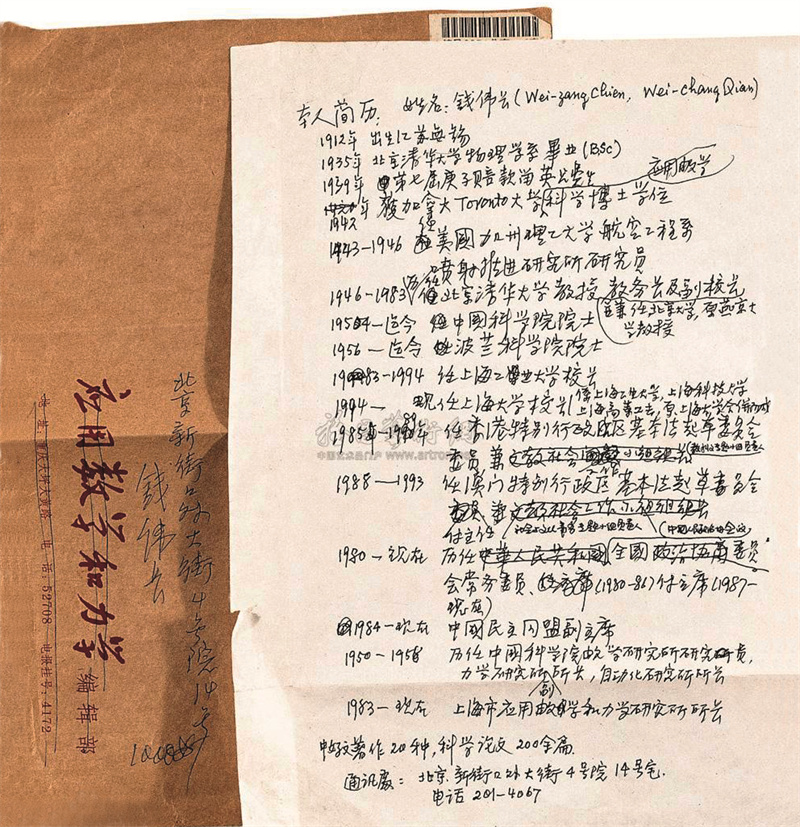 本人简历: 姓名: 钱伟长 (Wei-zang Chien, Wei-chang Qian)
1912年 出生江苏无锡
1935年 北京清华大学物理学系毕业 (BSc)
1939年 第七届庚子赔款留英公费生
应用数学
1942年 获加拿大Toronto大学科学博士学位
1943-1946 任美国加州理工大学航空工程系
喷射推进研究所研究员
1946-1983 历任北京清华大学教授 教务长及副校长
兼任北京大学,原燕京大
学教授
1954-迄今 中国科学院院士
1956-迄今 波兰科学院院士
1983-1994 任上海工业大学校长
1994- 现任上海大学校长
上海工业大学,上海科技大学
1985年- 任香港特别行政区基本法起草委员会
委员
1988-1993 任澳门特别行政区基本法起草委员会
付主任
1980-现在 历任 全国政治协商委员
会常务委员、 (1980-86) 付主席 (1987-
现在)
1984-现在 中国民主同盟副主席
1950-1958 历任中国科学院数学研究所研究员,
力学研究所副所长,自动化研究所所长
1983-现在 上海市应用数学和力学研究所所长
著作20种,科学论文200余篇.
通讯处: 北京新街口外大街4号院14号宅.
电话 201-4067
北京新街口外大街4号院14号
钱伟长
应用数学和力学 编辑部
电话:52708 电报挂号:4172